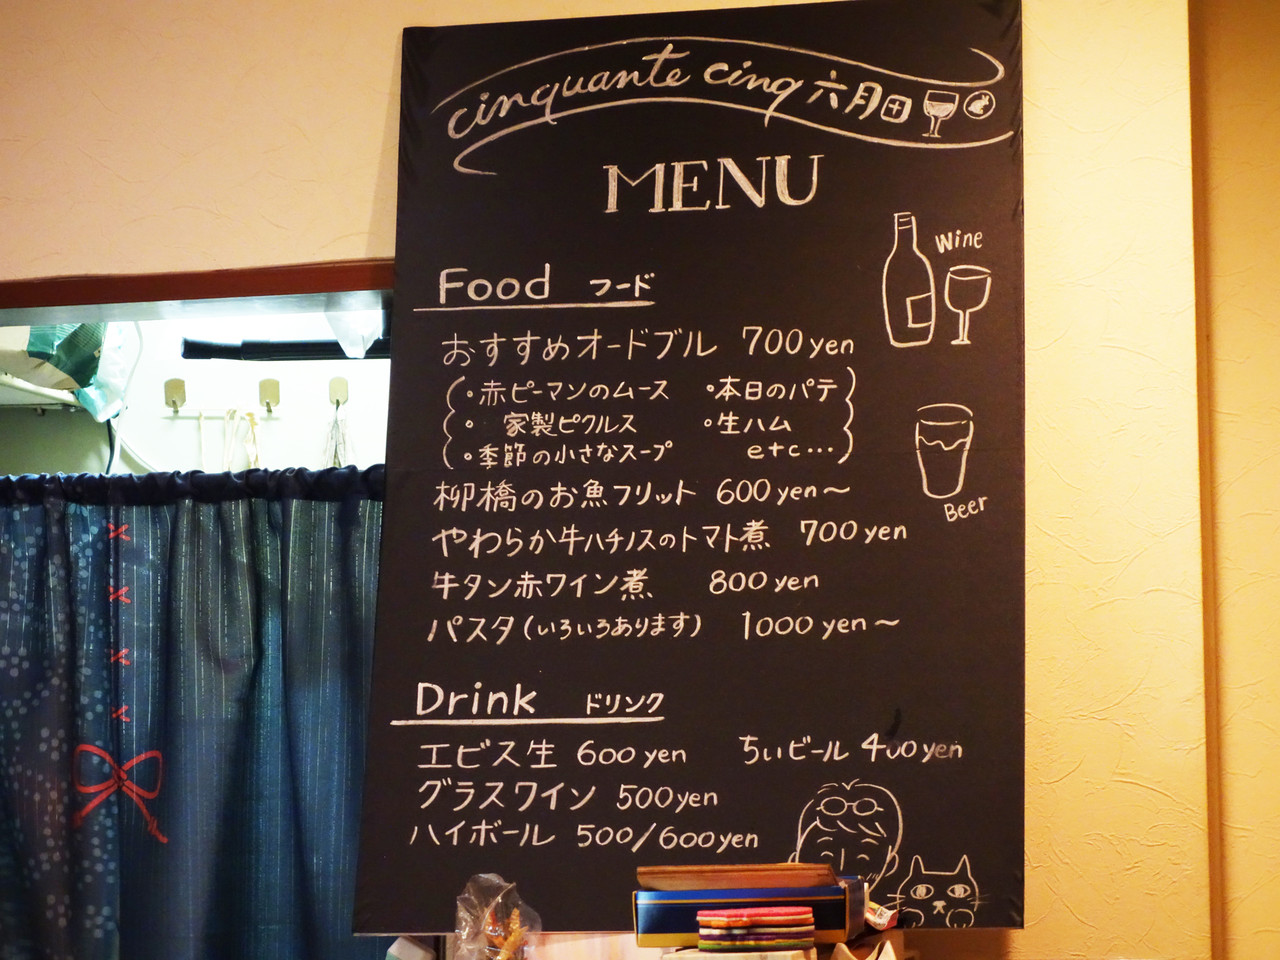 cinquante cinq 六月田
MENU
Wine
Food フード
おすすめオードブル 700yen
(・赤ピーマンのムース ・本日のパテ
・家製ピクルス ・生ハム
・季節の小さなスープ etc…)
柳橋のお魚フリット 600yen〜
Beer
やわらか牛ハチノスのトマト煮 700yen
牛タン赤ワイン煮 800yen
パスタ(いろいろあります) 1000yen〜
Drink ドリンク
エビス生 600yen ちぃビール 400yen
グラスワイン 500yen
ハイボール 500/600yen